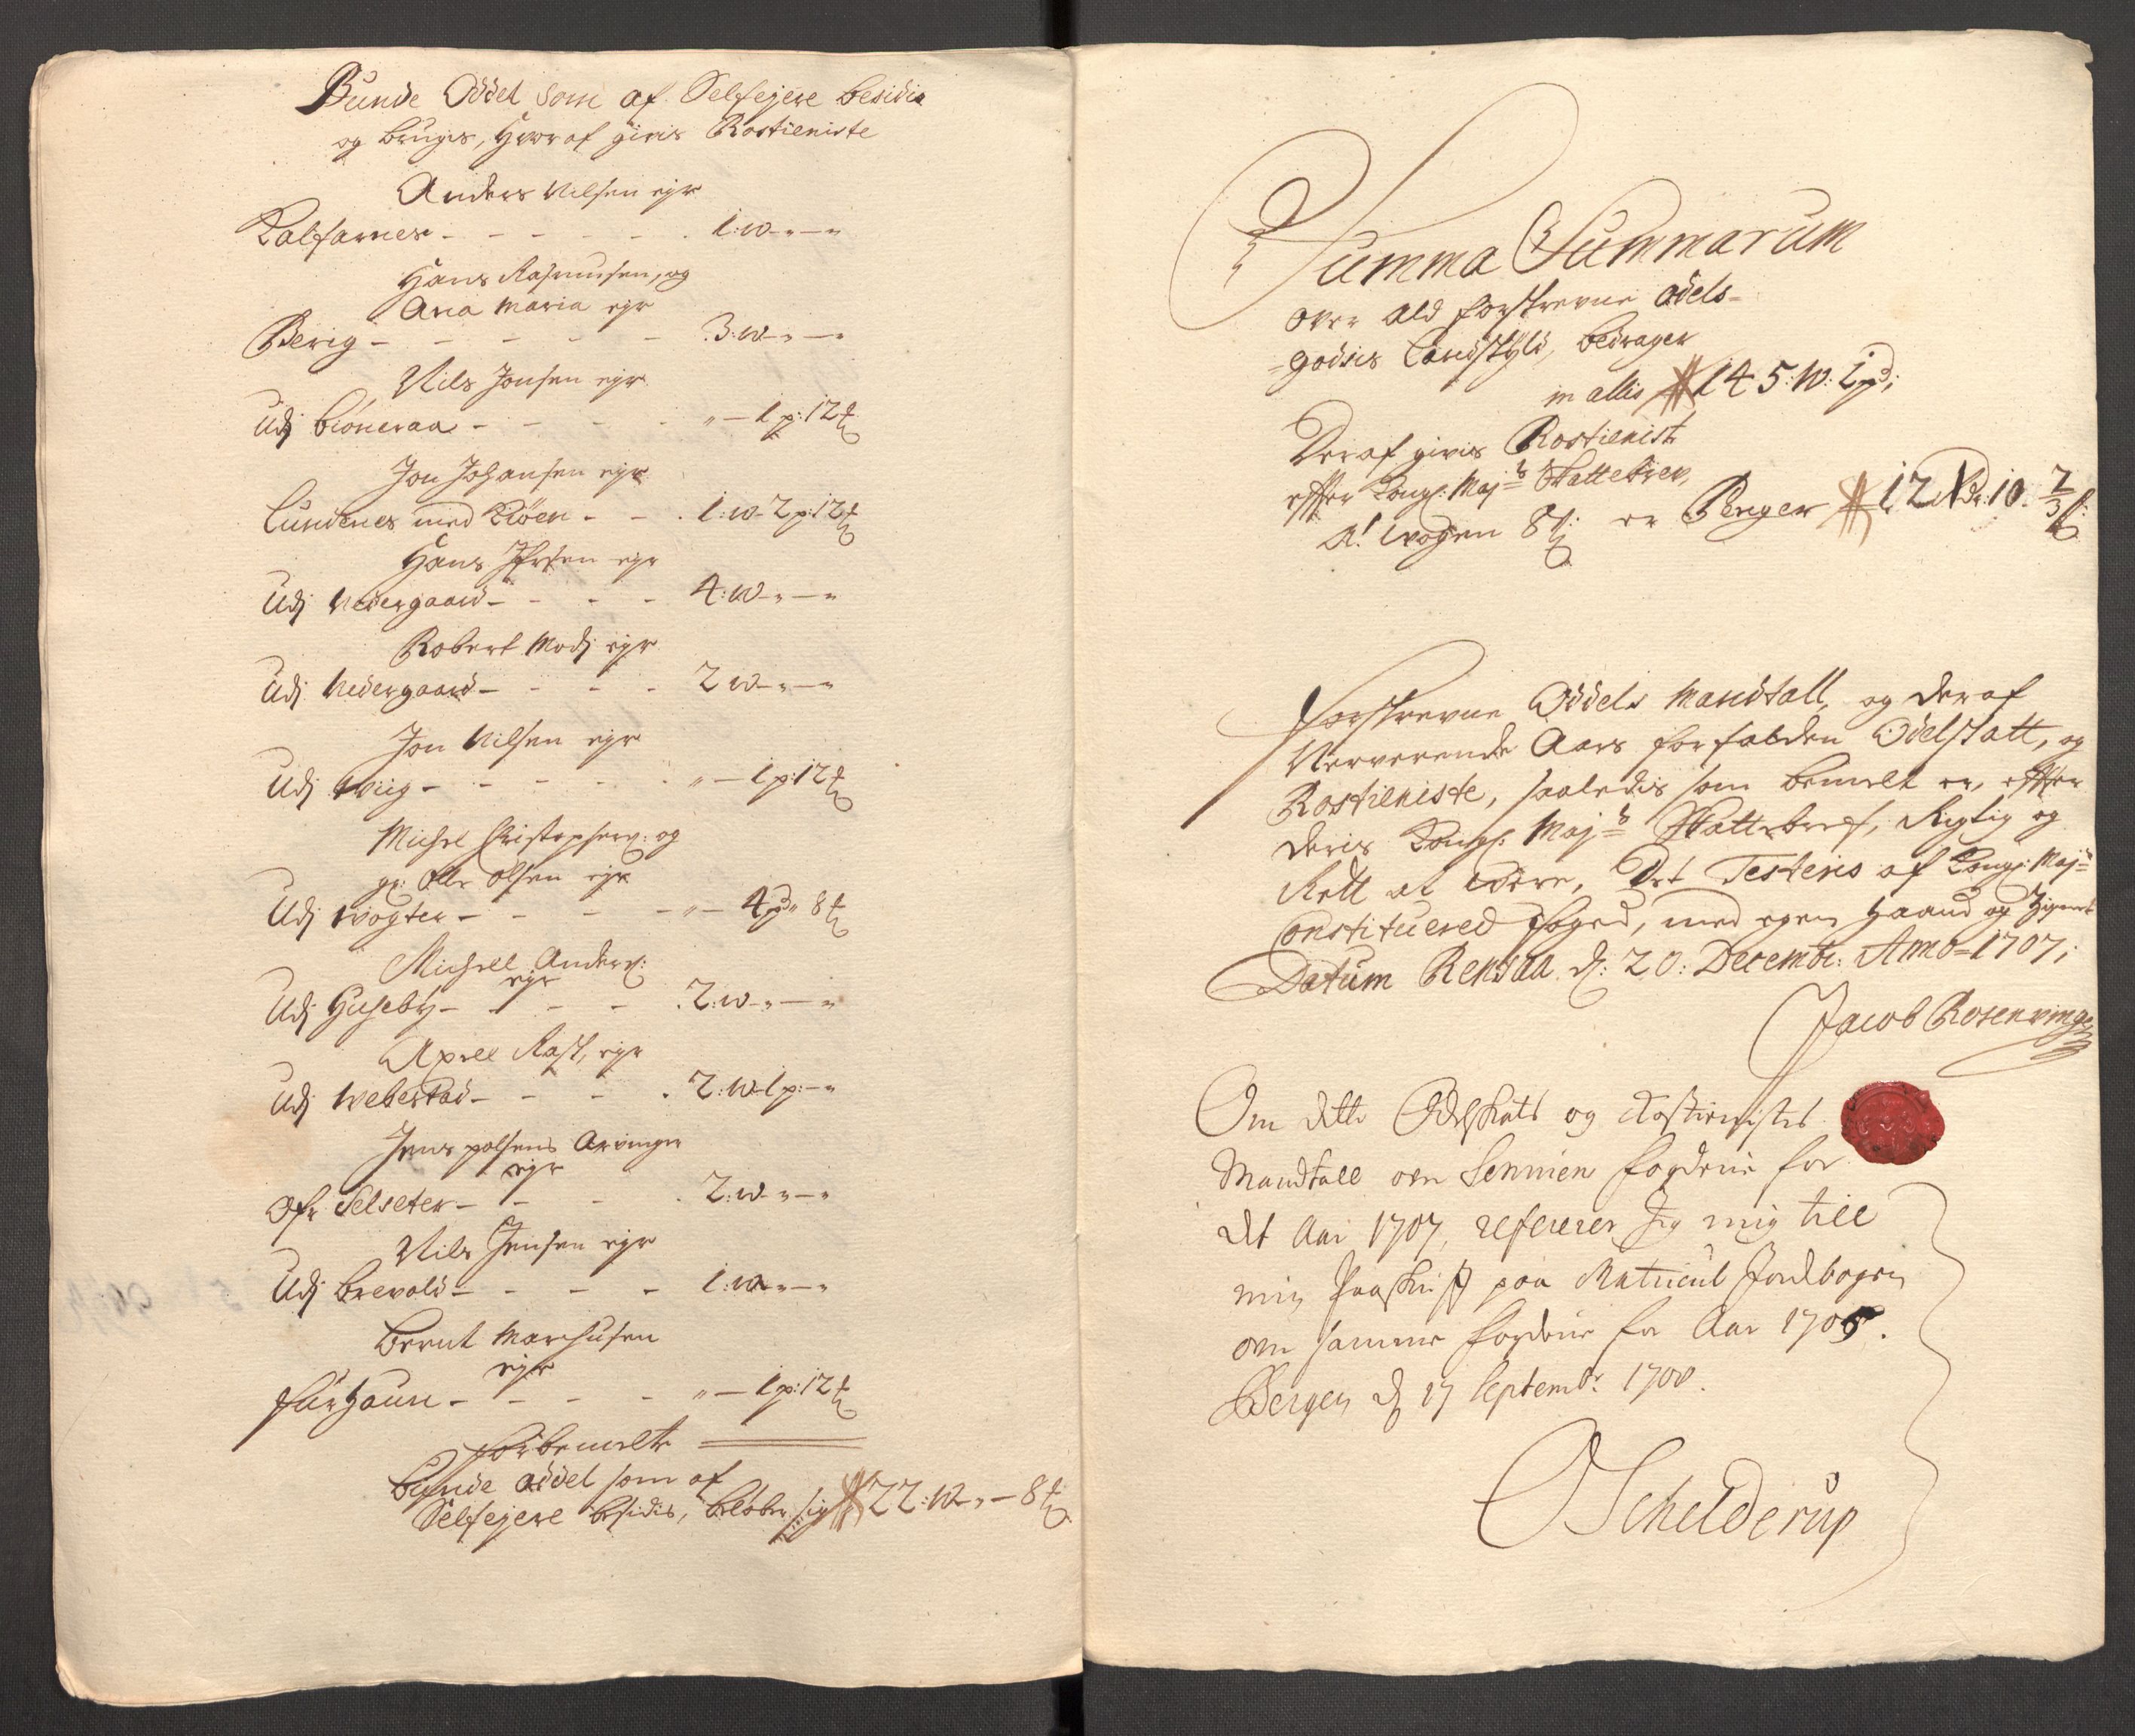 Bunde Oddel som af Selfejere besidis
og brugis, hvoraf givis Rostieniste
Anders Nilsen ejer
Kalfarnes - - - - - - 1: w - " - "
Hans Rasmusen, og
Ana Maria ejer
Berig - - - - - - 3: w - " - "
Nils Jonsen ejer
Udj Biöneraa - - - - - " - 1 p: 12 ℔
Jon Johansen ejer
Lundenes med Kiöen - - . 1: w - 2 p: 12 ℔
Hans Ifrsen ejer
Udj Nedergaard - - - - 4: w - " - "
Robert Modj ejer
Udj Nedergaard - - - - 2 w - " - "
Jon Nilsen ejer
Udj Wiig - - - - - - " - 1 p: 12 ℔
Michel Christophers: og
gl: Olle Olsen ejer
Udj Wogter - - - - - " - 4 pd " 8 ℔
Michell Anders:
ejer
Udj Huseby - - - - . 2: w - " - "
Axell Rast, ejer
Udj Webestad - - - . 2: w - 1 p: - "
Jens polsens Arvinger
ejer
Ofr Selseter - - - . 2: w - " - "
Nils Jensen ejer
Udj Brevold - - - - 1: w - " - "
Bernt Marchusen
ejer
Furhoun - - - - " - 1 p: 12 ℔
Forbemelte
Bunde oddel som af
Selfejere besidis, beløber sig 22: w - " - 8 ℔
Summa Summarum
Over Ald forskrevne Odels-
=godsis Landskyld, bedrager
in allis 145: w: 1 pd;
Deraf givis Rostienist
effter Kongl: Maj:ts Skattebrev,
A! wogen 8 ß: er Penger 12 Rdr: 10 2/3 ß:
Forskrevne Oddels Mandtall, og deraf
Nerverende Aars forfalden Odelskatt, og
Rostieniste, saaledis som bemelt er, effter
deris Kongl: Maj:ts Skattebref, Rigtig og
Rett at være, Det Testeris af Kongl: Maj:ts
Constituered Foged, med egen Haand og Zignet
Datum Rensaa d: 20: Decembr: Anno = 1707;
Jacob Rosenvinge
Om dette Odelskatt og Rostienistes
Mandtall over Sennien fogderie for
det Aar 1707, refererer Jeg mig till
min Paaskrift paa Matricul Jordbogen
over samme fogderie for Aar 1705.
Bergen d 17 Septembr: 1708.
O Schelderup